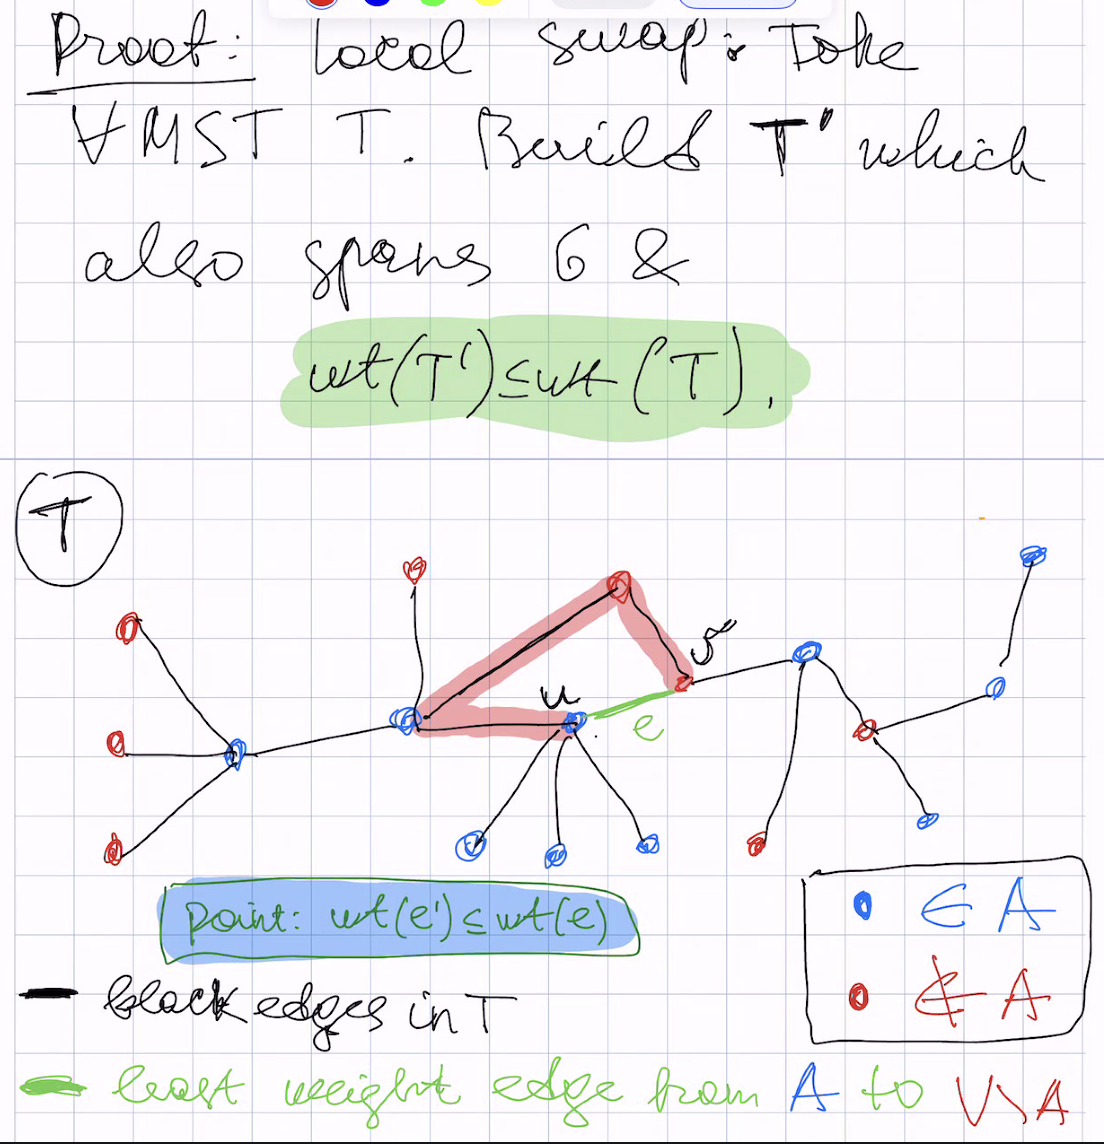 Proof: Local swap: Take
∀ MST T. Build T' which
also spans G &
wt(T') ≤ wt(T).
T
v
u
e
Point: wt(e') ≤ wt(e)
∈ A
black edges in T
∉ A
least weight edge from A to V∖A